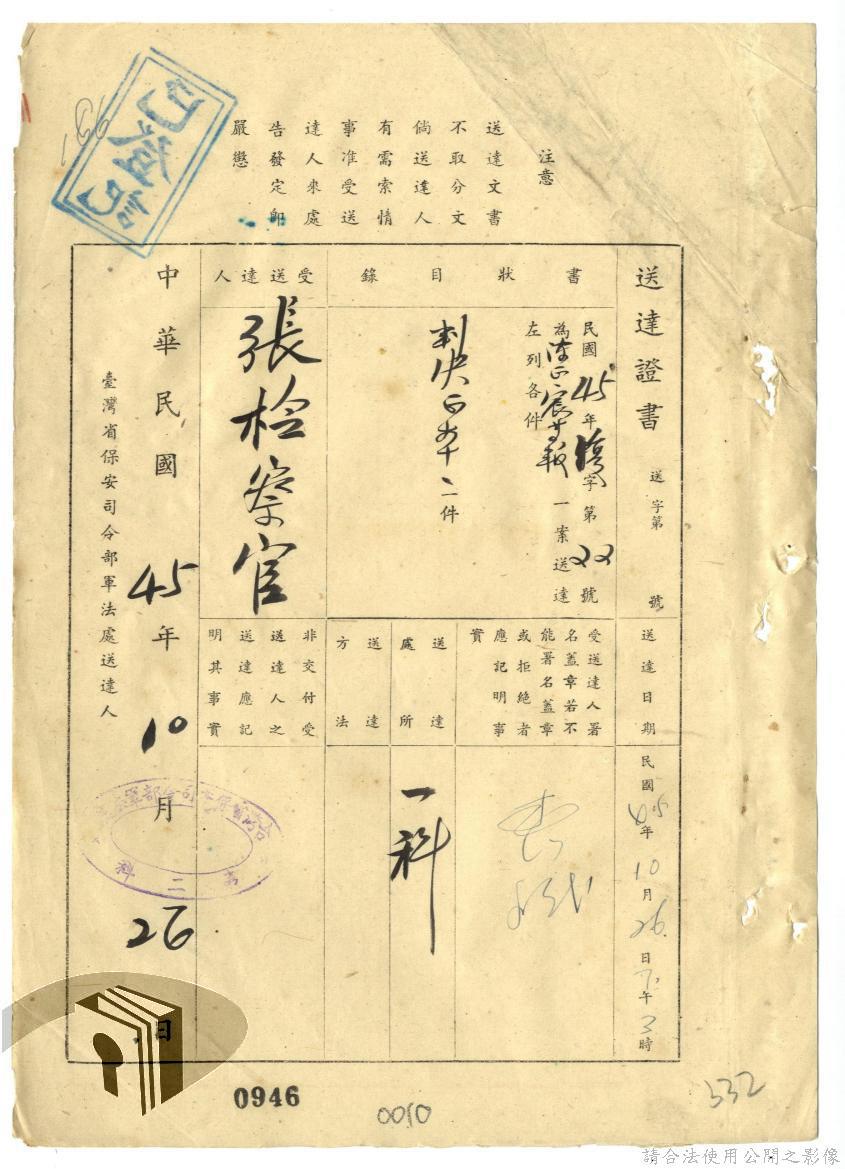 注意
送達文書
不取分文
倘送達人
有需索情
事准受送
達人來處
告發定卽
嚴懲
送達證書
送字第 號
書狀目錄
民國45年 字第22號
為 一案送達
左列各件
判決正本一件
受送達人
張检察官
送達日期
民國45年10月26日下午3時
受送達人署
名蓋章若不
能署名蓋章
或拒絶者
應記明事
實
送達處所
一科
送達方法
非交付受
送達人之
送達應記
明其事實
中華民國45年10月26日
臺灣省保安司令部軍法處送達人
第二科
0946
0010
332
166
請合法使用公開之影像